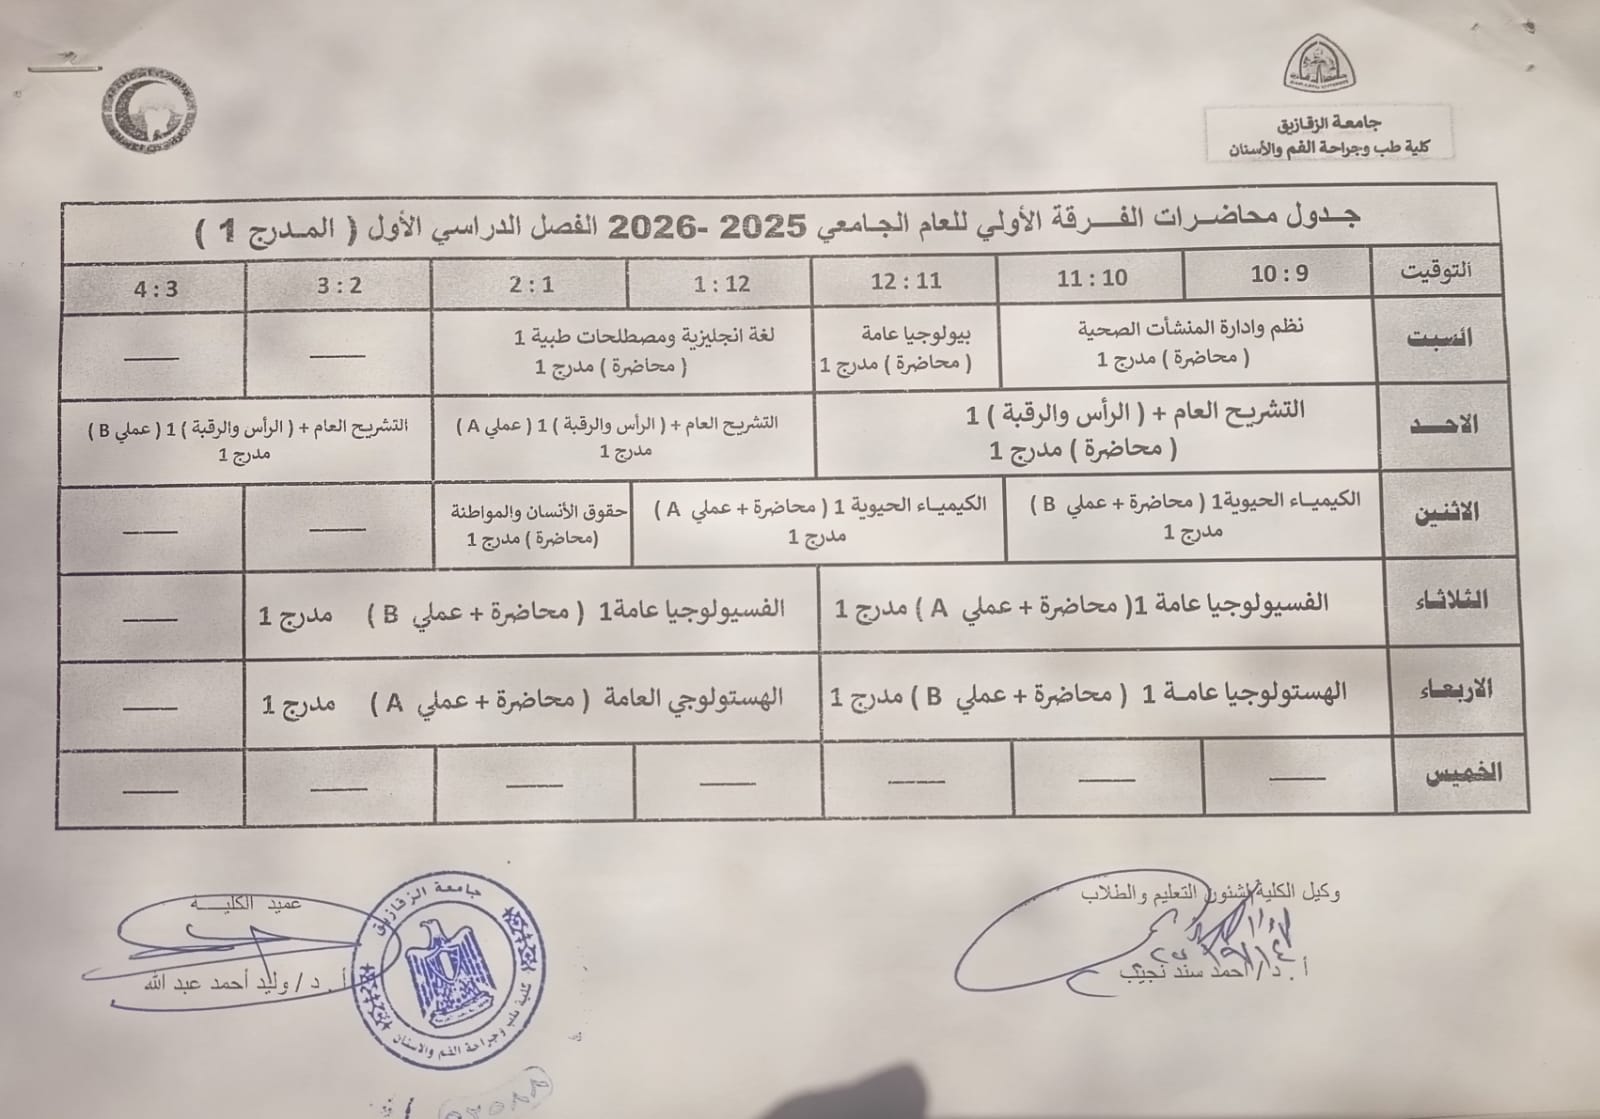 جامعة الزقازيق
كلية طب وجراحة الفم والأسنان
جـدول محاضـرات الفـــرقة الأولي للعام الجـامعي 2025 -2026 الفصل الدراسي الأول ( المـدرج 1 )
التوقيت
9 : 10
10 : 11
11 : 12
12 : 1
1 : 2
2 : 3
3 : 4
السبت
نظم وادارة المنشأت الصحية
( محاضرة ) مدرج 1
بيولوجيا عامة
( محاضرة ) مدرج 1
لغة انجليزية ومصطلحات طبية 1
( محاضرة ) مدرج 1
——
——
الاحـــد
التشريح العام + ( الرأس والرقبة ) 1
( محاضرة ) مدرج 1
التشريح العام + ( الرأس والرقبة ) 1 ( عملي A )
مدرج 1
التشريح العام + ( الرأس والرقبة ) 1 ( عملي B )
مدرج 1
الاثنين
الكيميـاء الحيوية1 ( محاضرة + عملي B )
مدرج 1
الكيميـاء الحيوية 1 ( محاضرة + عملي A )
مدرج 1
حقوق الأنسان والمواطنة
(محاضرة ) مدرج 1
——
——
الثلاثـاء
الفسيولوجيا عامة 1( محاضرة + عملي A ) مدرج 1
الفسيولوجيا عامة1 ( محاضرة + عملي B ) مدرج 1
——
الاربعـاء
الهستولوجيا عامـة 1 ( محاضرة + عملي B ) مدرج 1
الهستولوجي العامة ( محاضرة + عملي A ) مدرج 1
——
الخميس
——
——
——
——
——
——
——
وكيل الكلية لشئون التعليم والطلاب
أ . د / أحمد سند نجيب
عميد الكليـــة
أ . د / وليد أحمد عبد الله
جامعة الزقازيق
كلية طب وجراحة الفم والاسنان